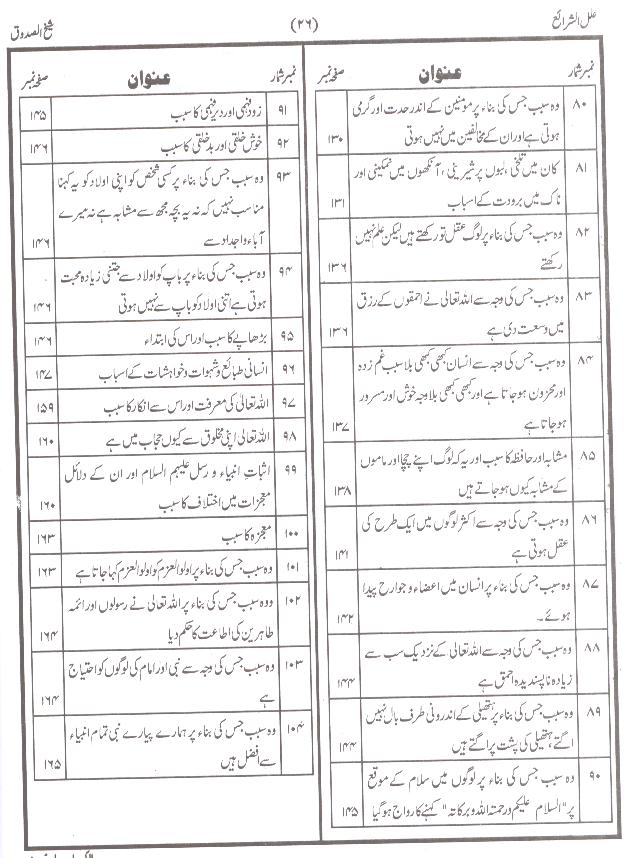 علل الشرائع (۲۶) شیخ الصدوق
نمبر شمار عنوان صفحہ نمبر
۸۰ وہ سبب جس کی بناء پر مومنین کے اندر حدت اور گرمی
ہوتی ہے اور ان کے مخالفین میں نہیں ہوتی ۱۳۰
۸۱ کان میں تلخی، لبوں پر شیرینی، آنکھوں میں نمکینی اور
ناک میں برودت کے اسباب ۱۳۱
۸۲ وہ سبب جس کی بناء پر لوگ عقل تو رکھتے ہیں لیکن علم نہیں
رکھتے ۱۳۶
۸۳ وہ سبب جس کی وجہ سے اللہ تعالیٰ نے احمقوں کے رزق
میں وسعت دی ہے ۱۳۶
۸۴ وہ سبب جس کی وجہ سے انسان کبھی کبھی بلا سبب غم زدہ
اور محزون ہو جاتا ہے اور کبھی کبھی بلا وجہ خوش اور مسرور
ہو جاتا ہے ۱۳۷
۸۵ مشابہ اور حافظہ کا سبب اور یہ کہ لوگ اپنے چچا اور ماموں
کے مشابہ کیوں ہو جاتے ہیں ۱۳۸
۸۶ وہ سبب جس کی وجہ سے اکثر لوگوں میں ایک طرح کی
عقل ہوتی ہے ۱۴۱
۸۷ وہ سبب جس کی بناء پر انسان میں اعضاء و جوارح پیدا
ہوئے۔ ۱۴۲
۸۸ وہ سبب جس کی وجہ سے اللہ تعالیٰ کے نزدیک سب سے
زیادہ ناپسندیدہ احمق ہے ۱۴۴
۸۹ وہ سبب جس کی بناء پر ہتھیلی کے اندرونی طرف بال نہیں
اگتے، ہتھیلی کی پشت پر اگتے ہیں ۱۴۴
۹۰ وہ سبب جس کی بناء پر لوگوں میں سلام کے موقع
پر "السلام علیکم ورحمتہ اللہ وبرکاتہ" کہنے کا رواج ہو گیا ۱۴۵
نمبر شمار عنوان صفحہ نمبر
۹۱ زود فہمی اور دیر فہمی کا سبب ۱۴۵
۹۲ خوش خلقی اور بد خلقی کا سبب ۱۴۶
۹۳ وہ سبب جس کی بناء پر کسی شخص کو اپنی اولاد کو یہ کہنا
مناسب نہیں کہ نہ یہ بچہ مجھ سے مشابہ ہے نہ میرے
آباء واجداد سے ۱۴۶
۹۴ وہ سبب جس کی بناء پر باپ کو اولاد سے جتنی زیادہ محبت
ہوتی ہے اتنی اولاد کو باپ سے نہیں ہوتی ۱۴۶
۹۵ بڑھاپے کا سبب اور اس کی ابتداء ۱۴۶
۹۶ انسانی طبائع و شہوات و خواہشات کے اسباب ۱۴۷
۹۷ اللہ تعالیٰ کی معرفت اور اس سے انکار کا سبب ۱۵۹
۹۸ اللہ تعالیٰ اپنی مخلوق سے کیوں حجاب میں ہے ۱۶۰
۹۹ اثبات انبیاء و رسل علیہم السلام اور ان کے دلائل
معجزات میں اختلاف کا سبب ۱۶۰
۱۰۰ معجزہ کا سبب ۱۶۳
۱۰۱ وہ سبب جس کی بناء پر اولوالعزم کو اولوالعزم کہا جاتا ہے ۱۶۳
۱۰۲ ووہ سبب جس کی بناء پر اللہ تعالیٰ نے رسولوں اور ائمہ
طاہرین کی اطاعت کا حکم دیا ۱۶۴
۱۰۳ وہ سبب جس کی وجہ سے نبی اور امام کی لوگوں کو احتیاج
ہے ۱۶۴
۱۰۴ وہ سبب جس کی بناء پر ہمارے پیارے نبی تمام انبیاء
سے افضل ہیں ۱۶۵